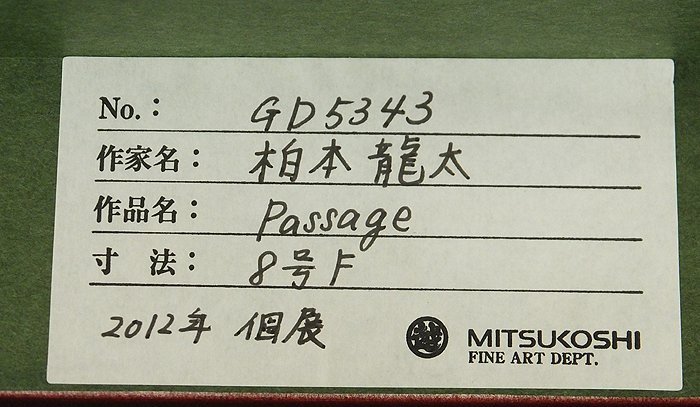 No.: GD5343
作家名: 柏本龍太
作品名: Passage
寸 法: 8号F
2012年 個展
越 MITSUKOSHI
FINE ART DEPT.